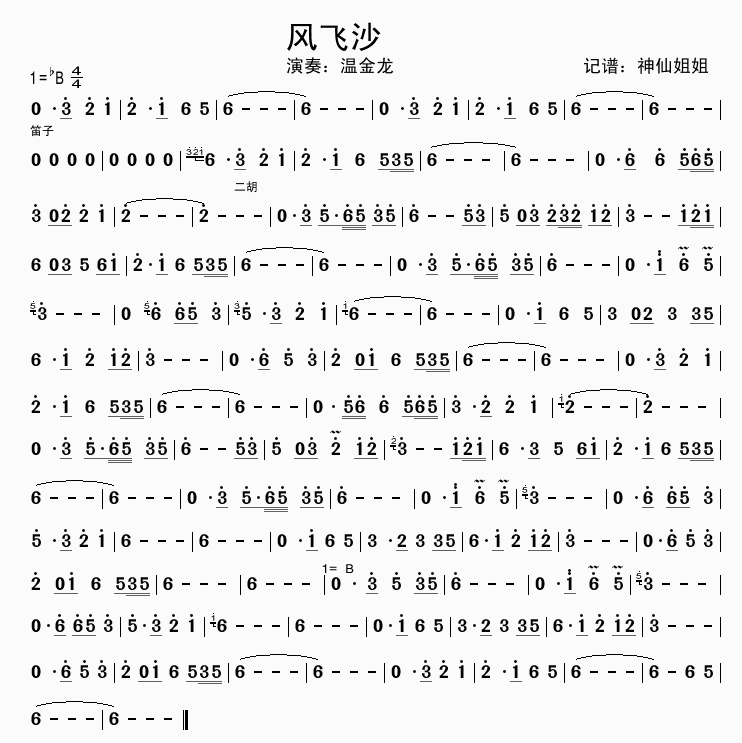 风飞沙
演奏：温金龙 记谱：神仙姐姐
1=♭B 4/4
0 ·3̇ 2̇ 1̇ | 2̇ ·1̇ 6 5 | 6 - - - | 6 - - - | 0 ·3̇ 2̇ 1̇ | 2̇ ·1̇ 6 5 | 6 - - - | 6 - - - |
笛子
0 0 0 0 | 0 0 0 0 | 3̇2̇1̇ 6 ·3̇ 2̇ 1̇ | 2̇ ·1̇ 6 535 | 6 - - - | 6 - - - | 0 ·6̇ 6̇ 5̇6̇5̇ |
二胡
3̇ 02̇ 2̇ 1̇ | 2̇ - - - | 2̇ - - - | 0 ·3̇ 5̇·6̇5̇ 3̇5̇ | 6̇ - - 5̇3̇ | 5̇ 03̇ 2̇3̇2̇ 1̇2̇ | 3̇ - - 1̇2̇1̇ |
6 03 5 61̇ | 2̇·1̇ 6 535 | 6 - - - | 6 - - - | 0 ·3̇ 5̇·6̇5̇ 3̇5̇ | 6̇ - - - | 0 ·1̇ 6̇ 5̇ |
5̇ 3̇ - - - | 0 5̇ 6̇ 6̇5̇ 3̇ | 3̇ 5̇ ·3̇ 2̇ 1̇ | 1̇ 6 - - - | 6 - - - | 0 ·1̇ 6 5 | 3 02 3 35 |
6 ·1̇ 2̇ 1̇2̇ | 3̇ - - - | 0 ·6̇ 5̇ 3̇ | 2̇ 01̇ 6 535 | 6 - - - | 6 - - - | 0 ·3̇ 2̇ 1̇ |
2̇ ·1̇ 6 535 | 6 - - - | 6 - - - | 0 ·5̇6̇ 6̇ 5̇6̇5̇ | 3̇ ·2̇ 2̇ 1̇ | 1̇ 2̇ - - - | 2̇ - - - |
0 ·3̇ 5̇·6̇5̇ 3̇5̇ | 6̇ - - 5̇3̇ | 5̇ 03̇ 2̇ 1̇2̇ | 2̇ 3̇ - - 1̇2̇1̇ | 6 ·3 5 61̇ | 2̇ ·1̇ 6 535 |
6 - - - | 6 - - - | 0 ·3̇ 5̇·6̇5̇ 3̇5̇ | 6̇ - - - | 0 ·1̇ 6̇ 5̇ | 5̇ 3̇ - - - | 0 ·6̇ 6̇5̇ 3̇ |
5̇ ·3̇ 2̇ 1̇ | 6 - - - | 6 - - - | 0 ·1̇ 6 5 | 3 ·2 3 35 | 6·1̇ 2̇ 1̇2̇ | 3̇ - - - | 0·6̇ 5̇ 3̇ |
1= B
2̇ 01̇ 6 535 | 6 - - - | 6 - - - | 0 · 3̇ 5̇ 3̇5̇ | 6̇ - - - | 0 ·1̇ 6̇ 5̇ | 5̇ 3̇ - - - |
0·6̇ 6̇5̇ 3̇ | 5̇·3̇ 2̇ 1̇ | 1̇ 6 - - - | 6 - - - | 0·1̇ 6 5 | 3·2 3 35 | 6·1̇ 2̇ 1̇2̇ | 3̇ - - - |
0 ·6̇ 5̇ 3̇ | 2̇ 01̇ 6 535 | 6 - - - | 6 - - - | 0 ·3̇ 2̇ 1̇ | 2̇ ·1̇ 6 5 | 6 - - - | 6 - 6 5 |
6 - - - | 6 - - - ‖